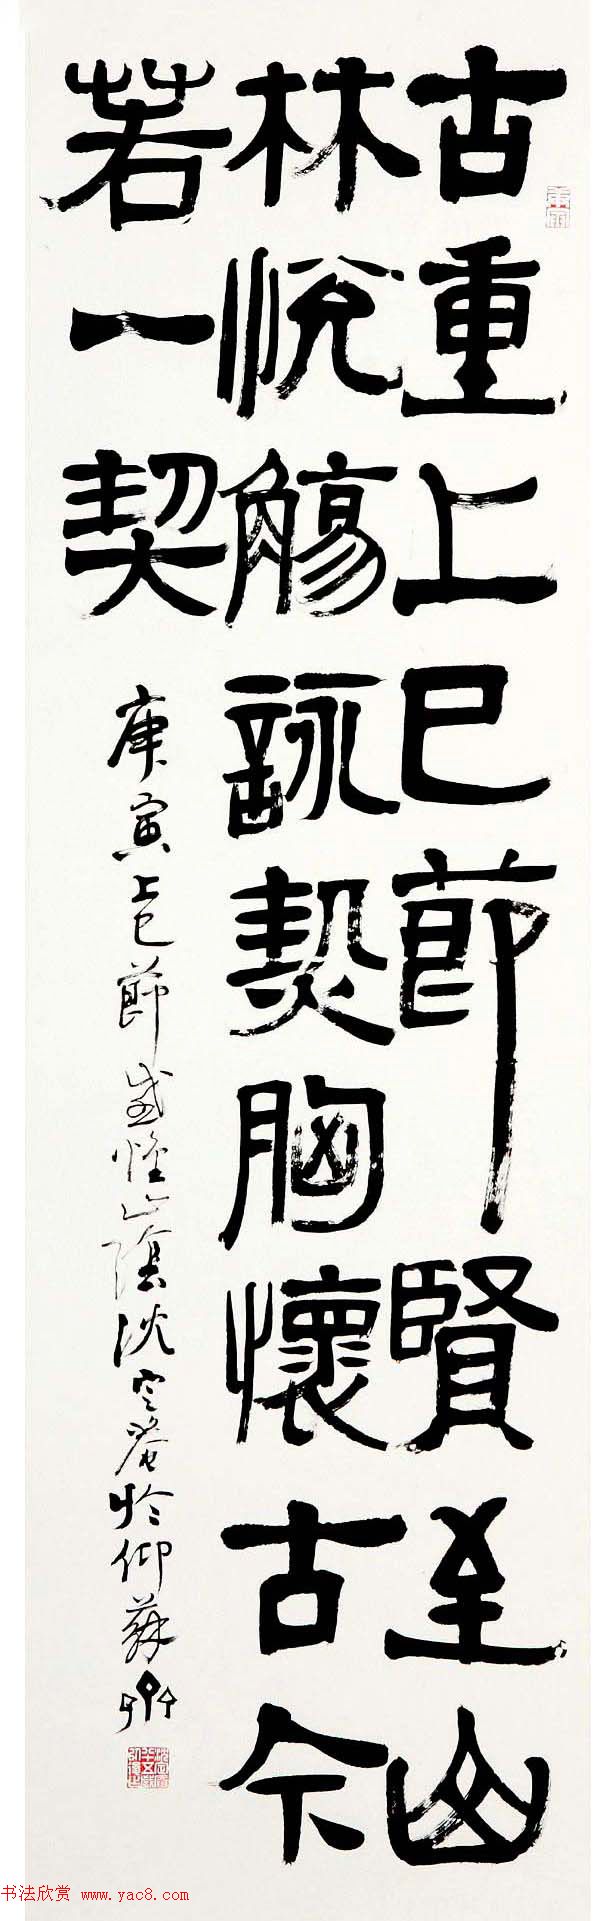 古重上巳節賢至山
林悅觴詠契胸懷古今
若一契
庚寅上巳節 山陰沈定庵於仰蘇
书法欣赏 www.yac8.com